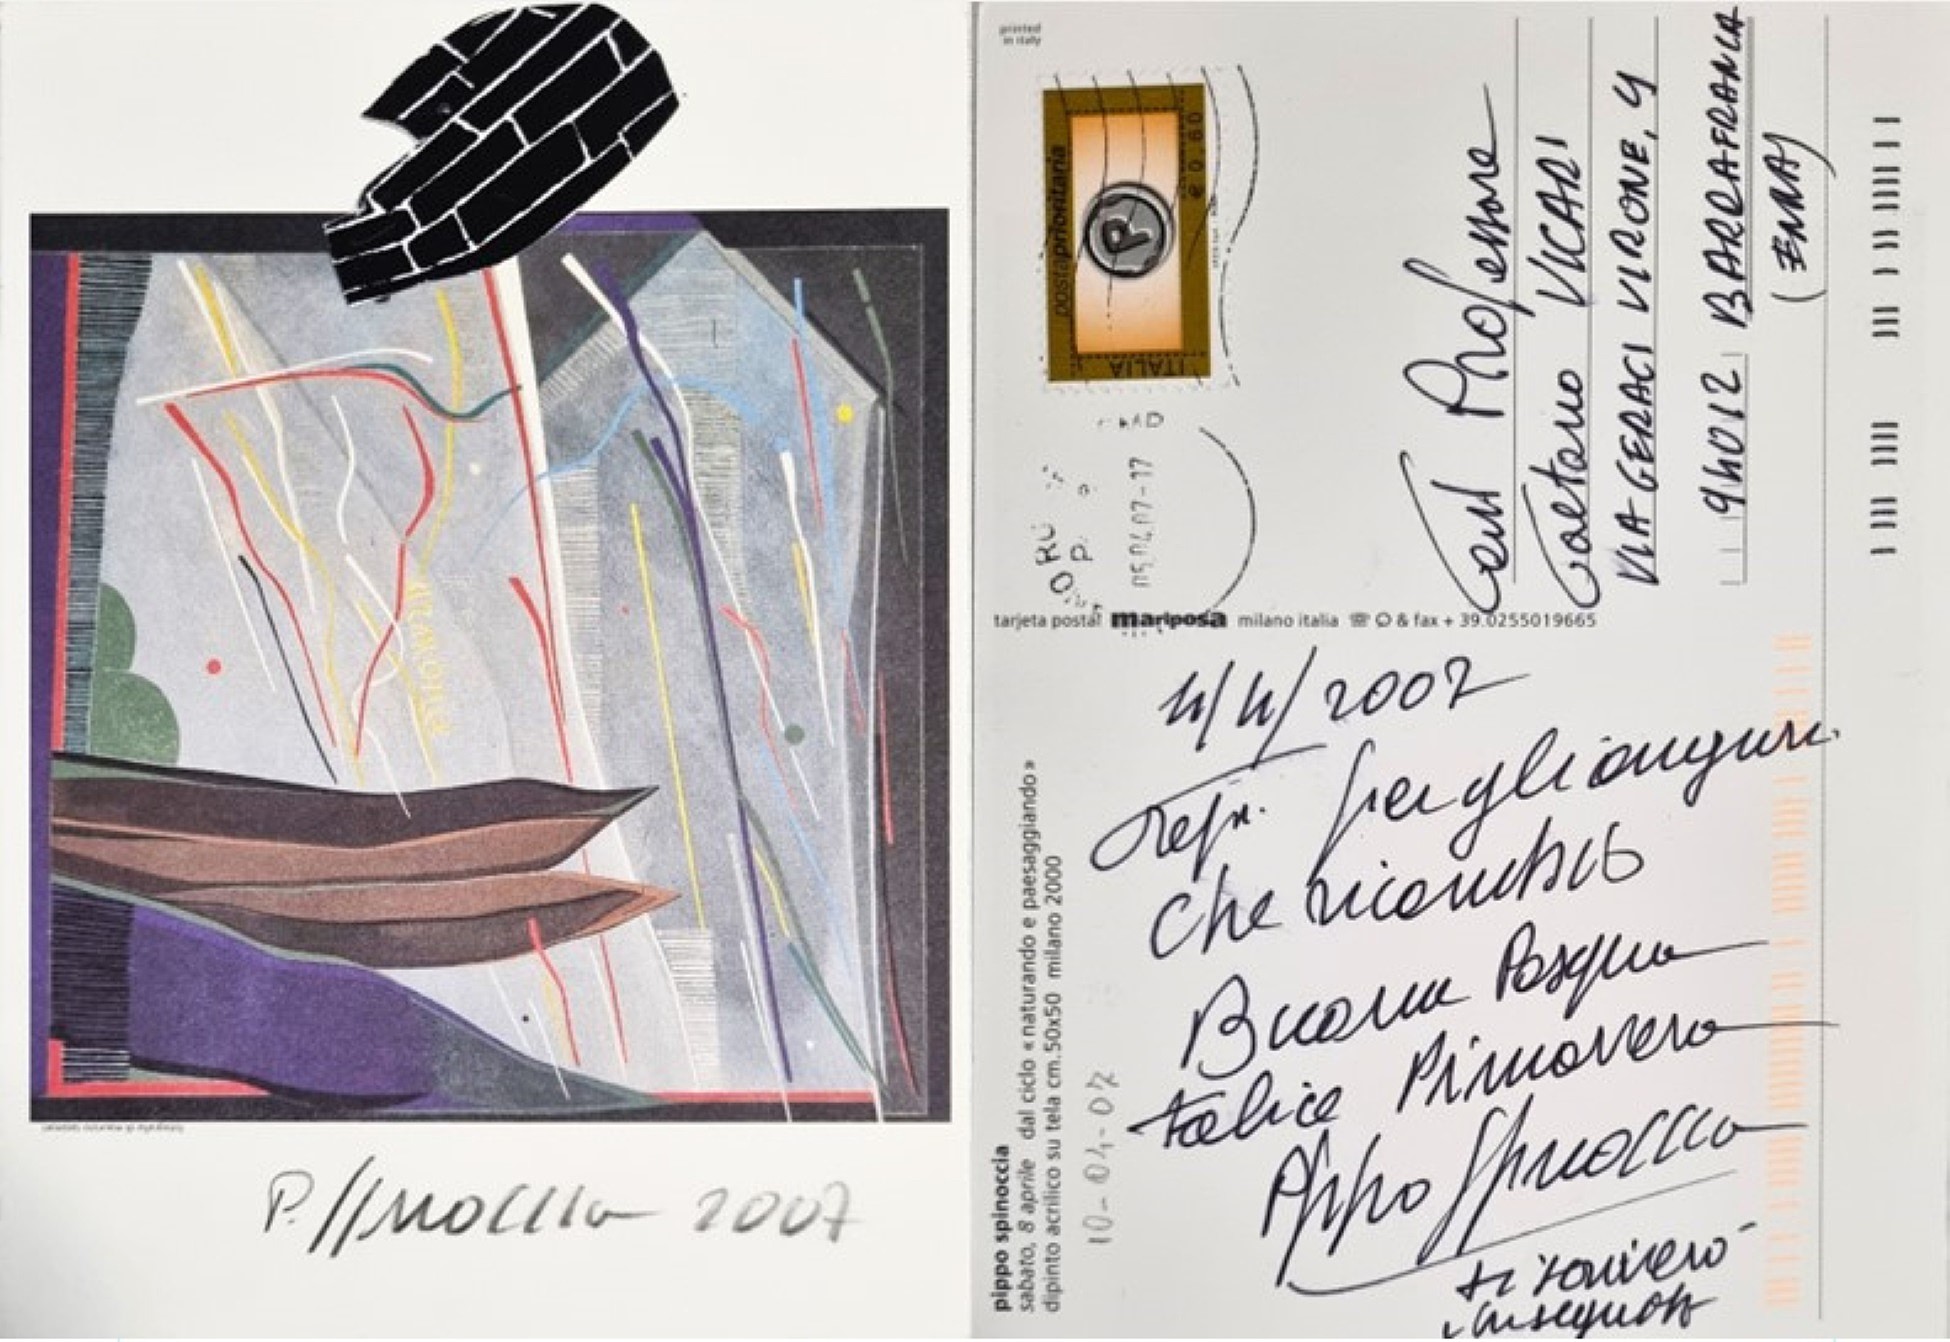 P. Spinoccia 2007
printed
in italy
postaprioritaria
€ 0,60
ITALIA
P
05.04.07-17
Prof​essore
Gaetano VICARI
VIA GERACI VIRONE, 4
94012 BARRAFRANCA
(ENNA)
tarjeta postal mariposa milano italia & fax + 39.0255019665
pippo spinoccia
sabato, 8 aprile dal ciclo « naturando e paesaggiando »
dipinto acrilico su tela cm.50x50 milano 2000
10-04-07
4/4/2007
per gli auguri
che ricambio
Buona Pasqua
Felice Primavera
Pippo Spinoccia
ti scriverò